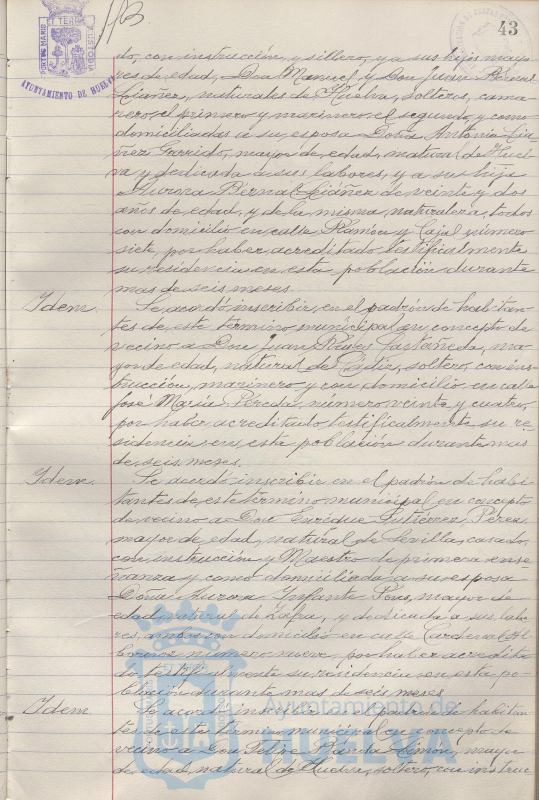 43
PORTUS MARIS ET TERRÆ CUSTODIA
AYUNTAMIENTO DE HUELVA
do, con instrucción, y sillero, y a sus hijos mayo
res de edad, Don Manuel y Don Juan Bernal
Liáñez, naturales de Huelva, solteros, cama
rero, el primero y marinero, el segundo, y como
domiciliadas a su esposa Doña Antonia Liá
ñez Garrido, mayor de edad, natural de Huel
va y dedicada a sus labores, y a su hija
Aurora Bernal Liáñez de veinte y dos
años de edad, y de la misma naturaleza, todos
con domicilio en calle Ramón y Cajal número
siete, por haber acreditado testificalmente
su residencia en esta población durante
mas de seis meses.
Idem. Se acordó inscribir, en el padrón de habitan-
tes de este término municipal en concepto de
vecino a Don Juan Reyes Castañeda, ma
yor de edad, natural de Cádiz, soltero, con ins-
trucción, marinero y con domicilio en calle
José María Pereda, número, veinte y cuatro,
por haber acreditado testificalmente su re-
sidencia en esta población durante mas
de seis meses.
Idem. Se acordó inscribir en el padrón de habi-
tantes de este término municipal en concepto
de vecino a Don Enrique Gutiérrez Pérez,
mayor de edad, natural de Sevilla, casado,
con instrucción y Maestro de primera ense
ñanza y como domiciliada a su esposa
Doña Aurora Infante mayor de
edad, natural de Zafra, y dedicada a sus labo
res, ambos con domicilio en calle Cardenal Al
bornoz número nueve, por haber acredita
do testificalmente su residencia en esta po-
blación durante mas de seis meses.
Idem. Se acordó inscribir en el padrón de habitan
tes de este término municipal en concepto de
vecino a Don Felipe Limón, mayor
de edad, natural de Huelva, soltero, con instruc
Ayuntamiento de
HUELVA